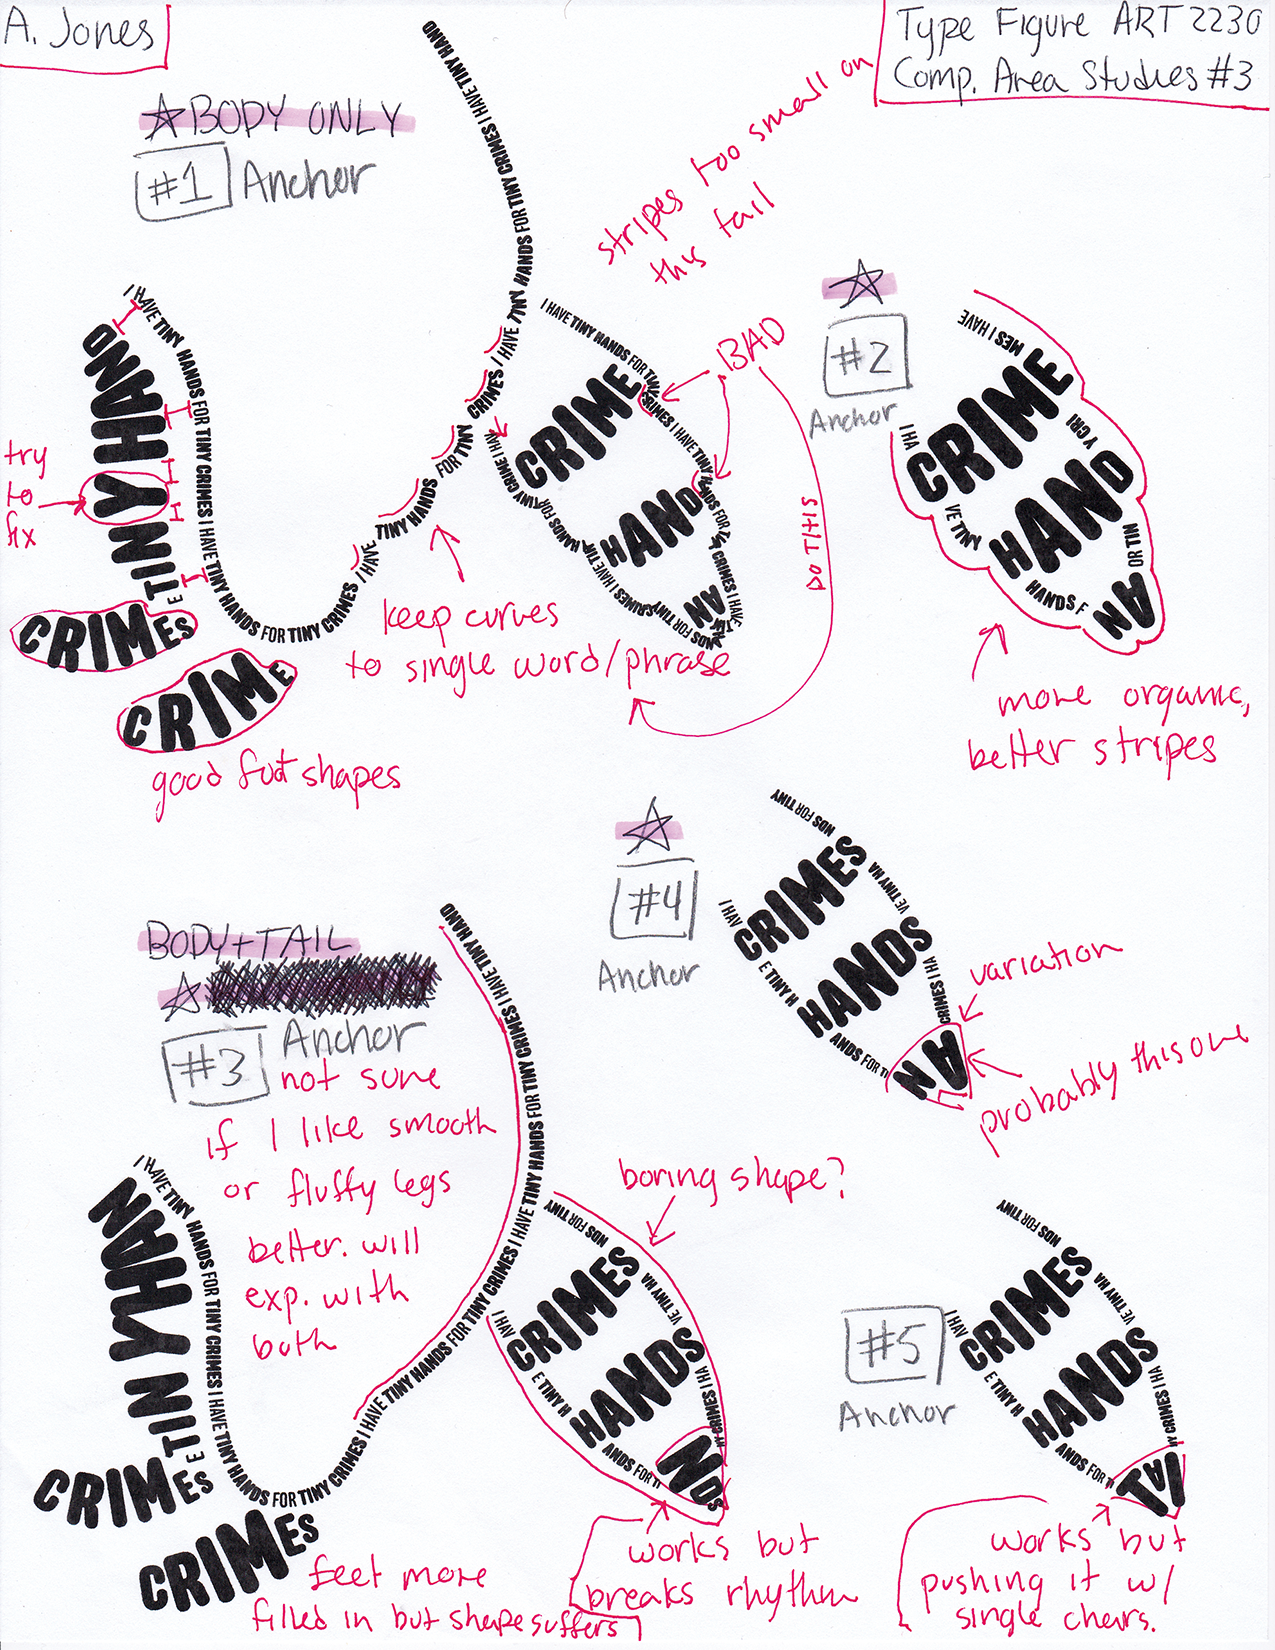 A. Jones
Type Figure ART 2230
Comp. Area Studies #3
☆ BODY ONLY
#1 Anchor
stripes too small on
this tail
I HAVE TINY HANDS FOR TINY CRIMES I HAVE TINY HANDS FOR TINY CRIMES I HAVE TINY HANDS FOR TINY CRIMES I HAVE TINY HANDS FOR TINY CRIMES I HAVE TINY HANDS FOR TINY CRIMES I HAVE TINY HAND
TINY HAND
E
CRIMES
CRIME
try
to
fix
good foot shapes
keep curves
to single word/phrase
I HAVE TINY HANDS FOR TINY CRIMES I HAVE TINY
CRIME
HAND
NA
BAD
DO THIS
☆
#2
Anchor
MES I HAVE
CRIME
I HA
Y CRI
HAND
VE TINY
OR TIN
HANDS F
NA
more organic,
better stripes
☆
#4
Anchor
NDS FOR TINY
CRIMES
I HAV
VE TINY HA
HANDS
E TINY H
CRIMES I HA
ANDS FOR TI
NA
variation
probably this one
BODY + TAIL
☆
#3 Anchor
not sure
if I like smooth
or fluffy legs
better. will
exp. with
both
I HAVE TINY HANDS FOR TINY CRIMES I HAVE TINY HANDS FOR TINY CRIMES I HAVE TINY HANDS FOR TINY CRIMES I HAVE TINY HANDS FOR TINY CRIMES I HAVE TINY HAND
TINY HAN
E
CRIMES
CRIMES
feet more
filled in but shape suffers
boring shape?
NDS FOR TINY
CRIMES
I HAV
VE TINY HA
HANDS
E TINY H
NY CRIMES I HA
ANDS FOR TI
NDS
works but
breaks rhythm
#5
Anchor
NDS FOR TINY
CRIMES
I HAV
VE TINY HA
HANDS
E TINY H
NY CRIMES I HA
ANDS FOR T
TAI
works but
pushing it w/
single chars.